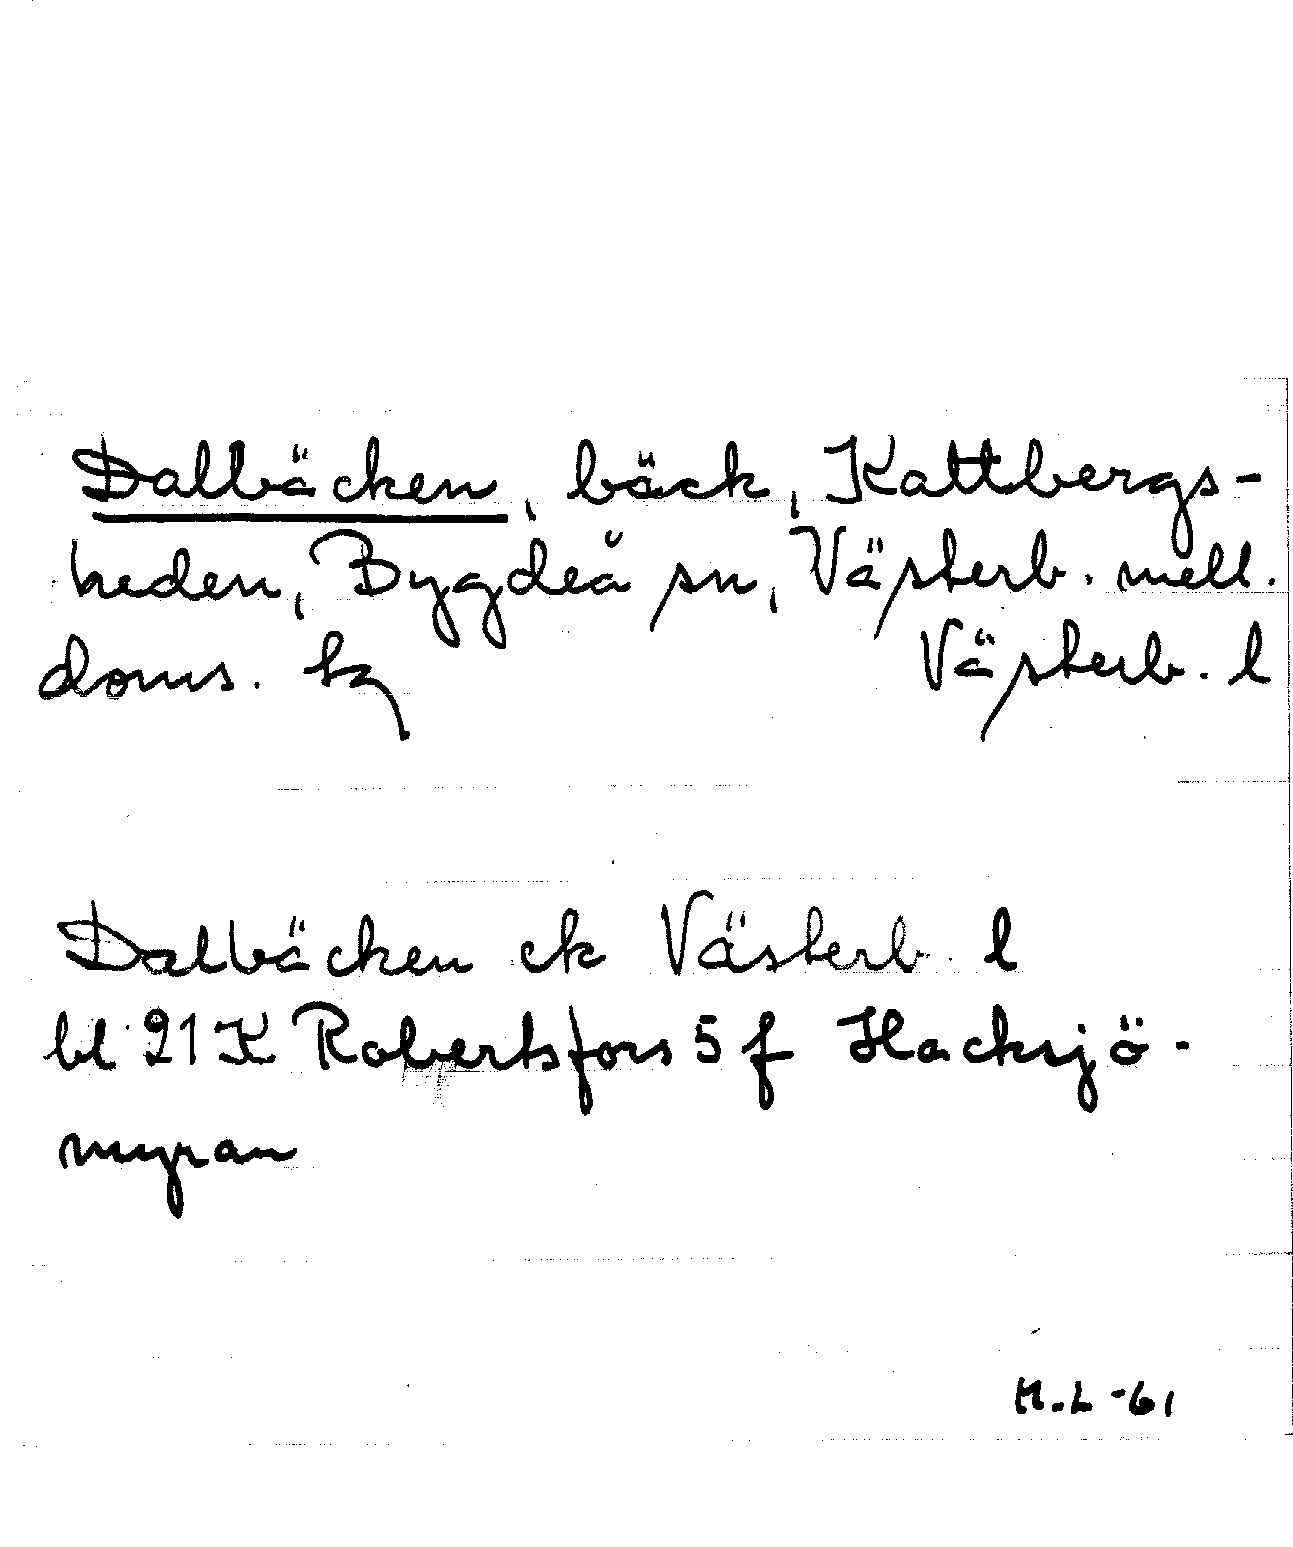 Dalbäcken, bäck, Kattbergs-
heden, Bygdeå sn, Västerb. mell.
doms. Västerb. l
Dalbäcken ek Västerb l
bl 21 K Robertsfors 5 f Hacksjö-
myran
H.L -61